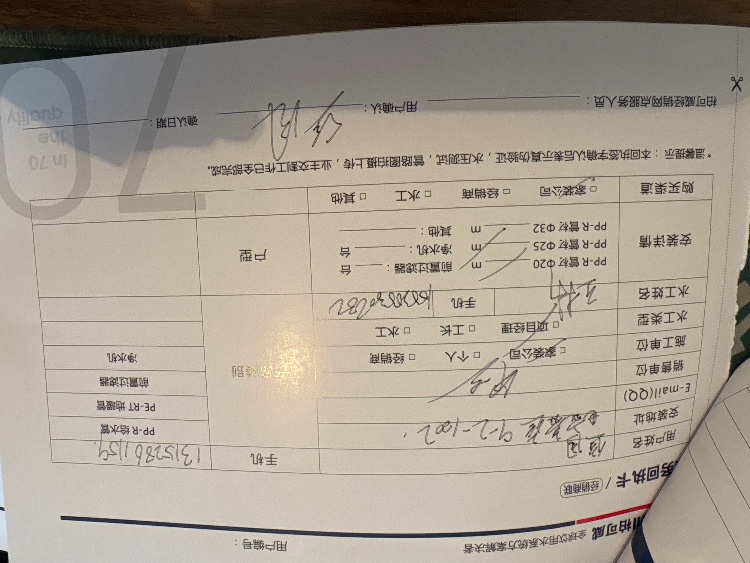 柏可威 全球饮用水系统方案解决者 用户编号：
务回执卡 / 经销商联
用户姓名 手机
安装地址 9-2-1002. PP-R 给水管
E-mail(QQ) PE-RT 地暖管
销售单位 类别 前置过滤器
施工单位 □ 家装公司 □ 个人 □ 经销商 净水机
水工类型 □ 项目经理 □ 工长 □ 水工
水工姓名 手机
安装详情 PP-R 管材 Φ20 m 前置过滤器： 台 户型
PP-R 管材 Φ25 m 净水机： 台
PP-R 管材 Φ32 m 其他：
购买渠道 □ 家装公司 □ 经销商 □ 水工 □ 其他
*温馨提示：本回执签字确认后表示真伪验证，水压测试，管路图拍摄上传，业主交割工作已全部完成。
柏可威经销网点服务人员： 用户确认： 确认日期：
In 70
the
quality
70